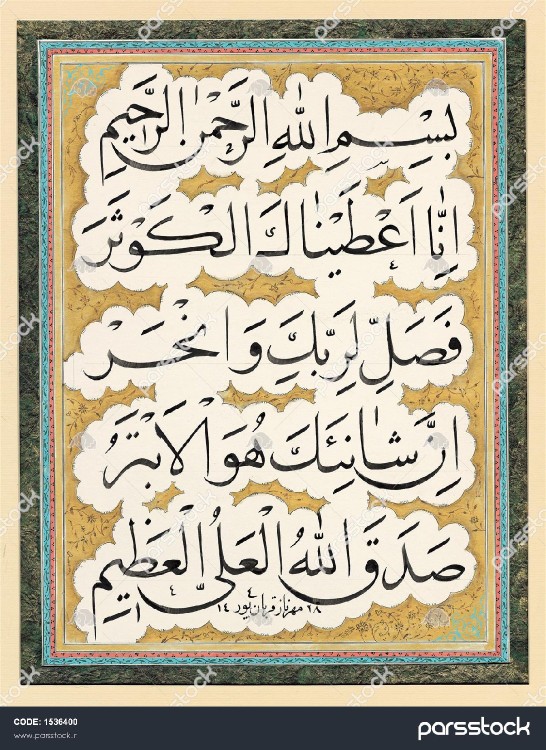 بِسْمِ اللهِ الرَّحْمٰنِ الرَّحِیمِ
اِنّٰا اَعْطَیْنٰاكَ الْكَوْثَرَ
فَصَلِّ لِرَبِّكَ وَ انْحَرْ
اِنَّ شٰانِئَكَ هُوَ الْاَبْتَرُ
صَدَقَ اللهُ الْعَلِیُّ الْعَظِیمِ
مهرناز قربان‌پور
CODE: 1536400
www.parsstock.ir
parsstock